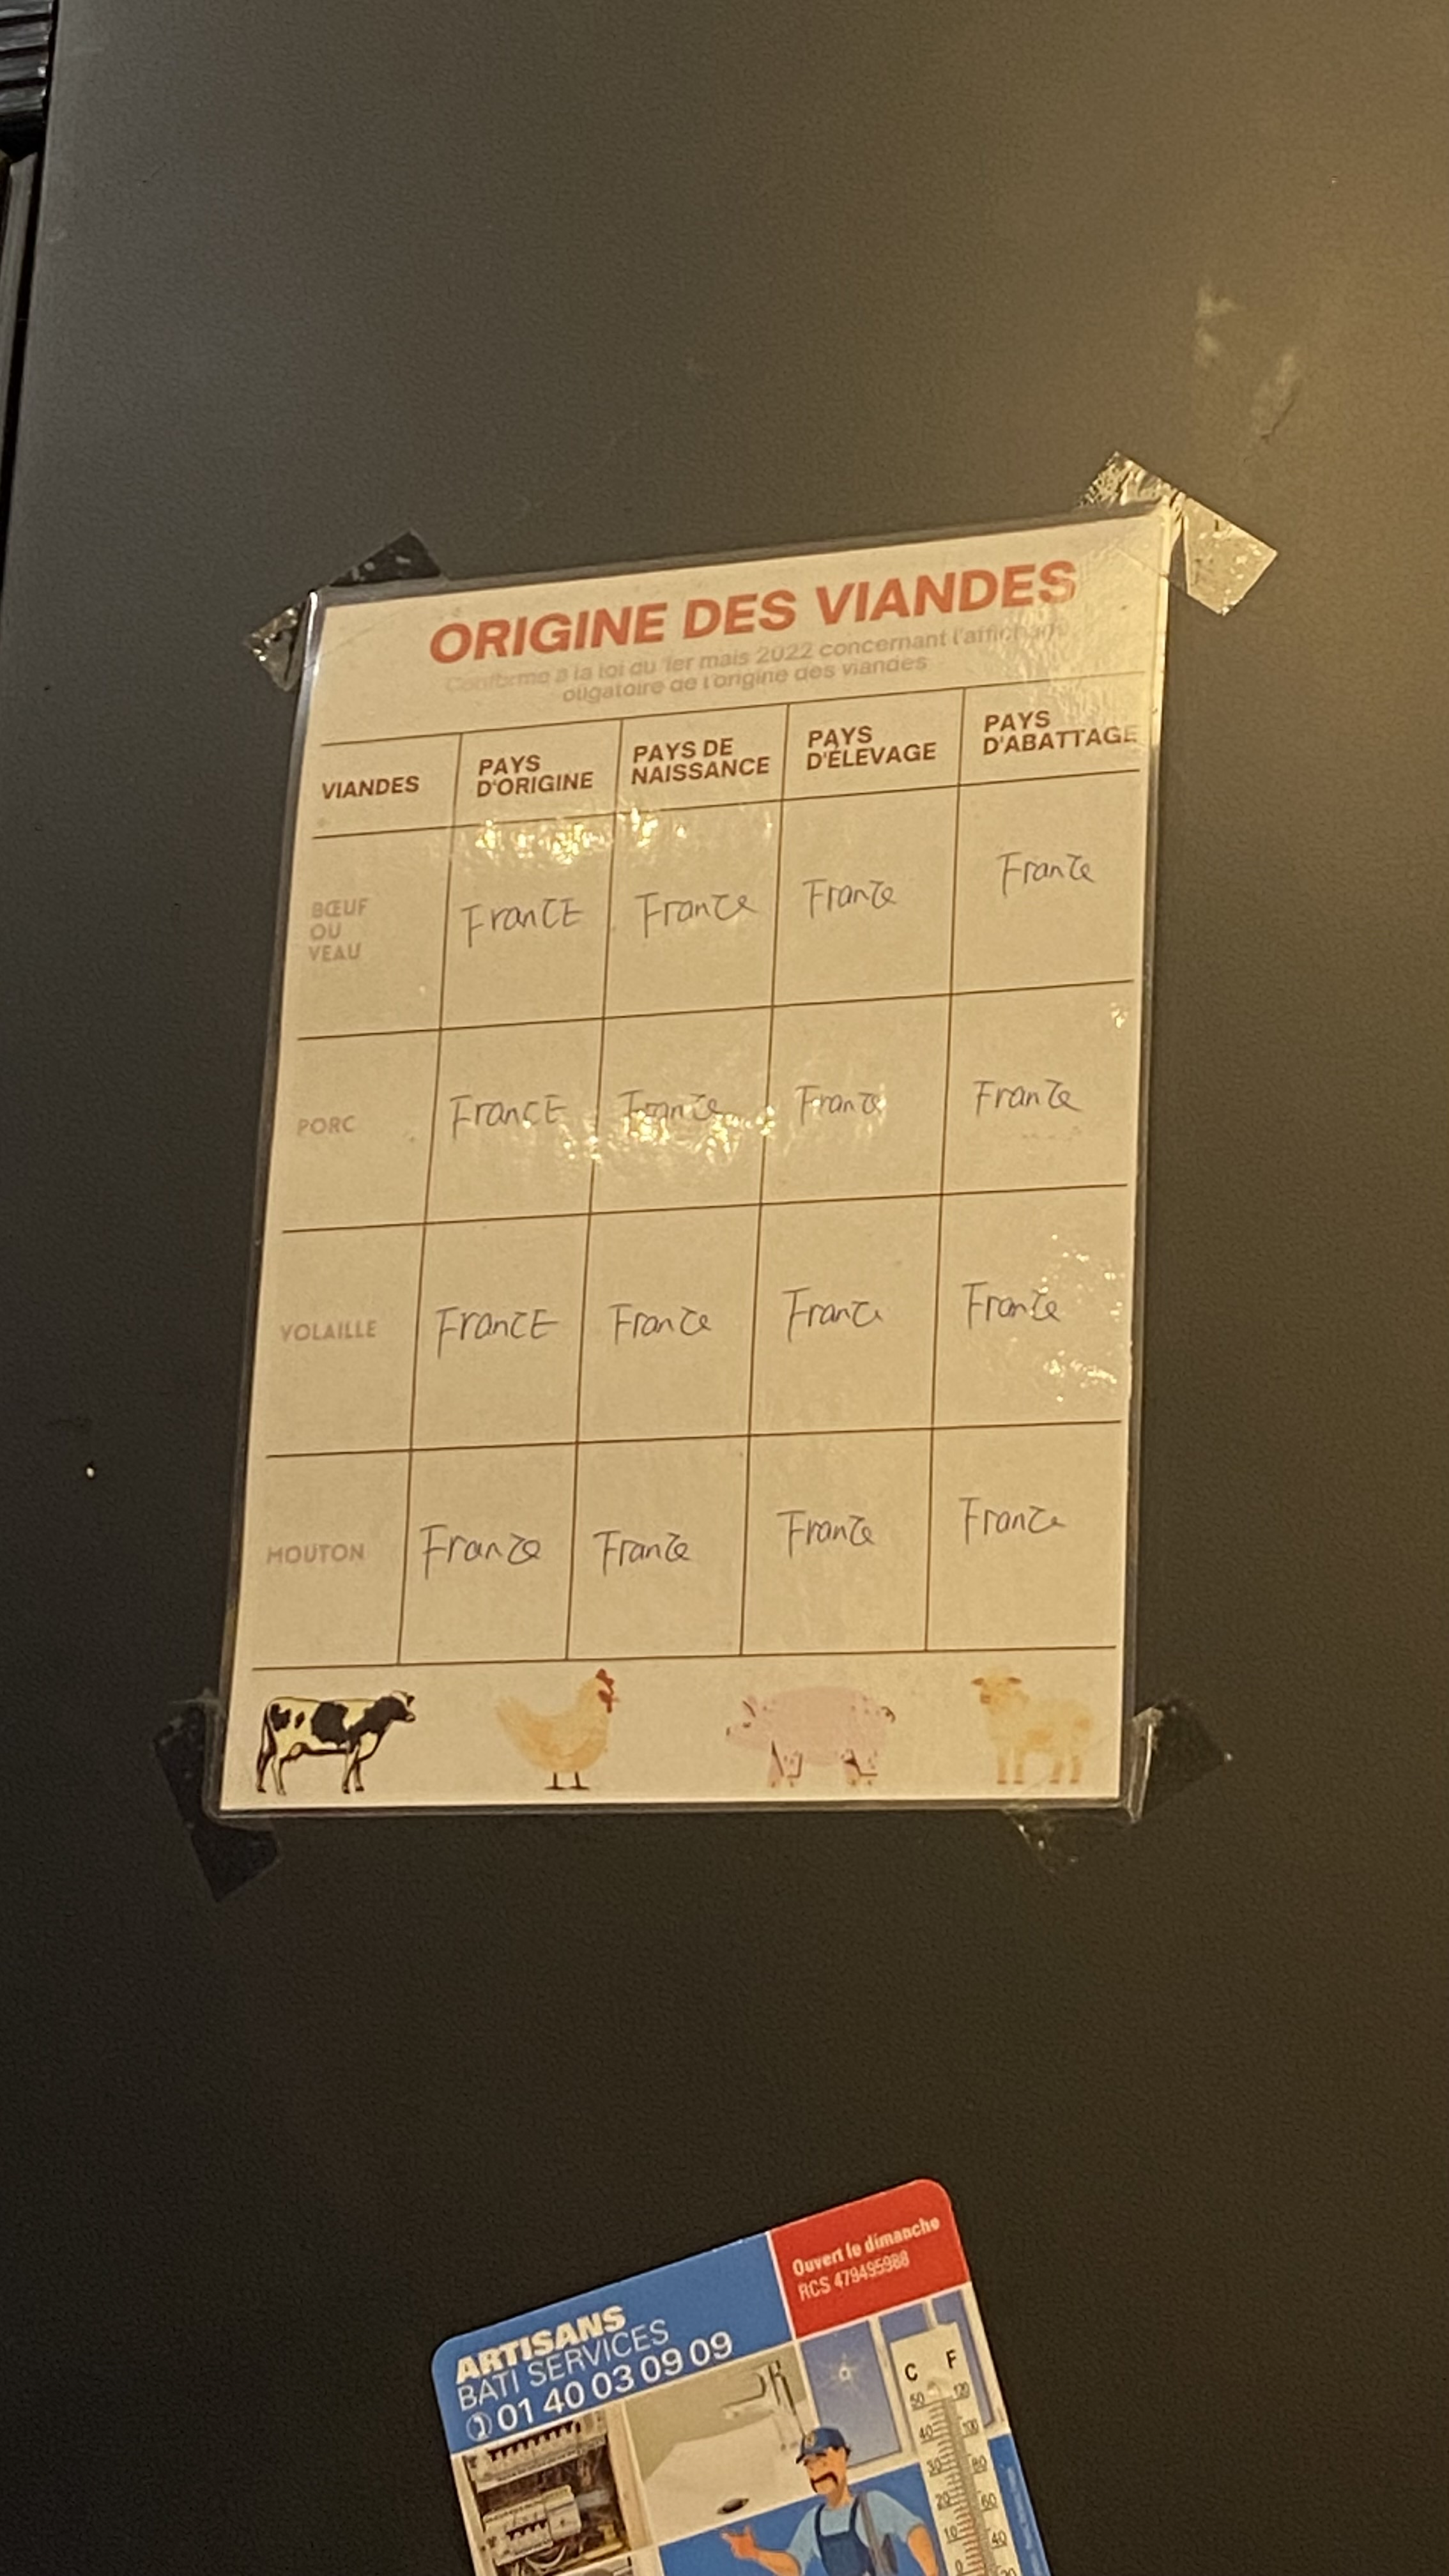 ORIGINE DES VIANDES
Conforme a la loi du 1er mais 2022 concernant l'affichage
oligatoire de l'origine des viandes
VIANDES PAYS D'ORIGINE PAYS DE NAISSANCE PAYS D'ÉLEVAGE PAYS D'ABATTAGE
BŒUF OU VEAU FrancE France France France
PORC FrancE France France France
VOLAILLE FrancE France France France
MOUTON France France France France
Ouvert le dimanche
RCS 479495988
ARTISANS
BATI SERVICES
01 40 03 09 09
C F
50 120
40 100
30 80
20 60
10 40
0 20